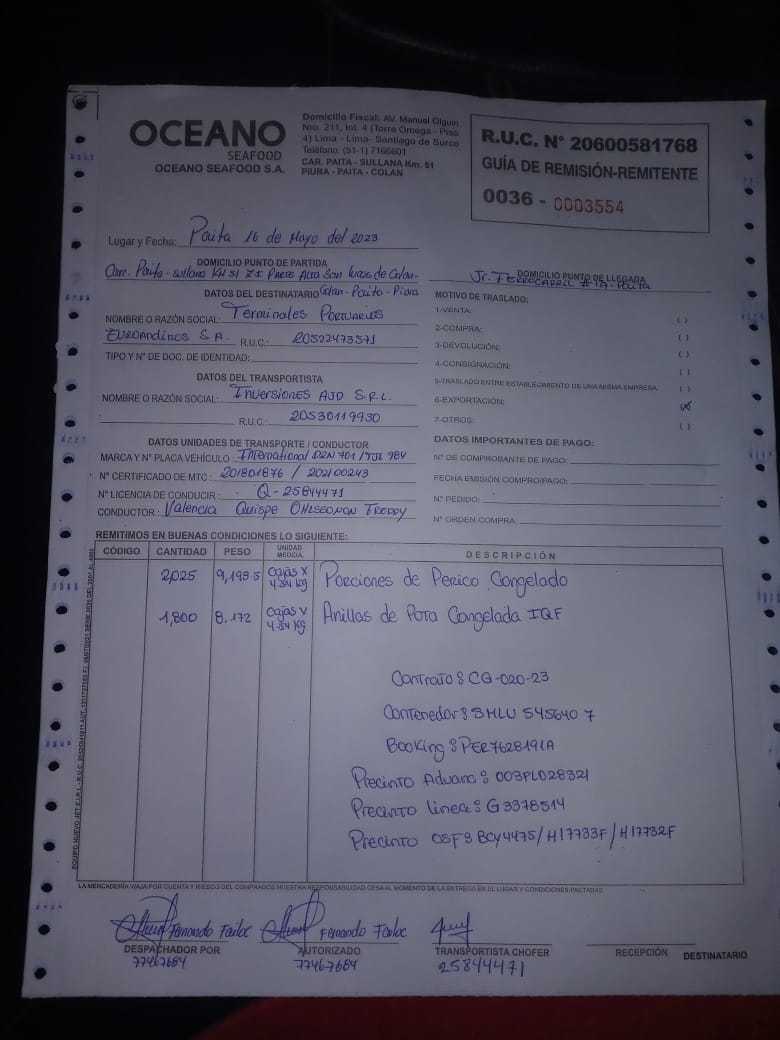 OCEANO
SEAFOOD
OCEANO SEAFOOD S.A.
Domicilio Fiscal: AV. Manuel Olguin
Nro. 211, Int. 4 (Torre Omega - Piso
4) Lima - Lima- Santiago de Surco
Teléfono: (51-1) 7166601
CAR. PAITA - SULLANA Km. 51
PIURA - PAITA - COLAN
R.U.C. N° 20600581768
GUÍA DE REMISIÓN-REMITENTE
0036 - 0003554
Lugar y Fecha: Paita 16 de Mayo del 2023
DOMICILIO PUNTO DE PARTIDA
Carr. Paita - Sullana KM 51 Z.I Parte Alta San Lucas de Colan-
Colan-Paita-Piura
DOMICILIO PUNTO DE LLEGADA
Jr. Ferrocarril #127-Paita
DATOS DEL DESTINATARIO
NOMBRE O RAZÓN SOCIAL: Terminales Portuarios
Euroandinos S.A. R.U.C.: 20522473571
TIPO Y N° DE DOC. DE IDENTIDAD:
DATOS DEL TRANSPORTISTA
NOMBRE O RAZÓN SOCIAL: Inversiones AJD S.R.L.
R.U.C.: 20530119930
DATOS UNIDADES DE TRANSPORTE / CONDUCTOR
MARCA Y N° PLACA VEHÍCULO: International D2N 701 / TJL 984
N° CERTIFICADO DE MTC: 201801876 / 202100243
N° LICENCIA DE CONDUCIR: Q-25844471
CONDUCTOR: Valencia Quispe Freddy
MOTIVO DE TRASLADO:
1-VENTA: ( )
2-COMPRA: ( )
3-DEVOLUCIÓN: ( )
4-CONSIGNACIÓN: ( )
5-TRASLADO ENTRE ESTABLECIMIENTO DE UNA MISMA EMPRESA ( )
6-EXPORTACIÓN: (X)
7-OTROS: ( )
DATOS IMPORTANTES DE PAGO:
N° DE COMPROBANTE DE PAGO:
FECHA EMISIÓN COMPRO/PAGO:
N° PEDIDO:
N° ORDEN COMPRA:
REMITIMOS EN BUENAS CONDICIONES LO SIGUIENTE:
CÓDIGO CANTIDAD PESO UNIDAD MEDIDA. DESCRIPCIÓN
2,025 9,193.5 Cajas x 4.54 kg Porciones de Perico Congelado
1,800 8,172 Cajas x 4.54 kg Anillas de Pota Congelada IQF
Contrato: CG-020-23
Contenedor: SMLU 545640 7
Booking: PER7628191A
Precinto Aduana: 003PL028321
Precinto linea: G3378514
Precinto OSF: BCY4475/H17733F/H17732F
LA MERCADERÍA VIAJA POR CUENTA Y RIESGO DEL COMPRADOS NUESTRA RESPONSABILIDAD CESA AL MOMENTO DE LA ENTREGA EN EL LUGAR Y CONDICIONES PACTADAS
Fernando Failoc Fernando Failoc
DESPACHADOR POR AUTORIZADO TRANSPORTISTA CHOFER RECEPCIÓN DESTINATARIO
77467684 77467684 25844471